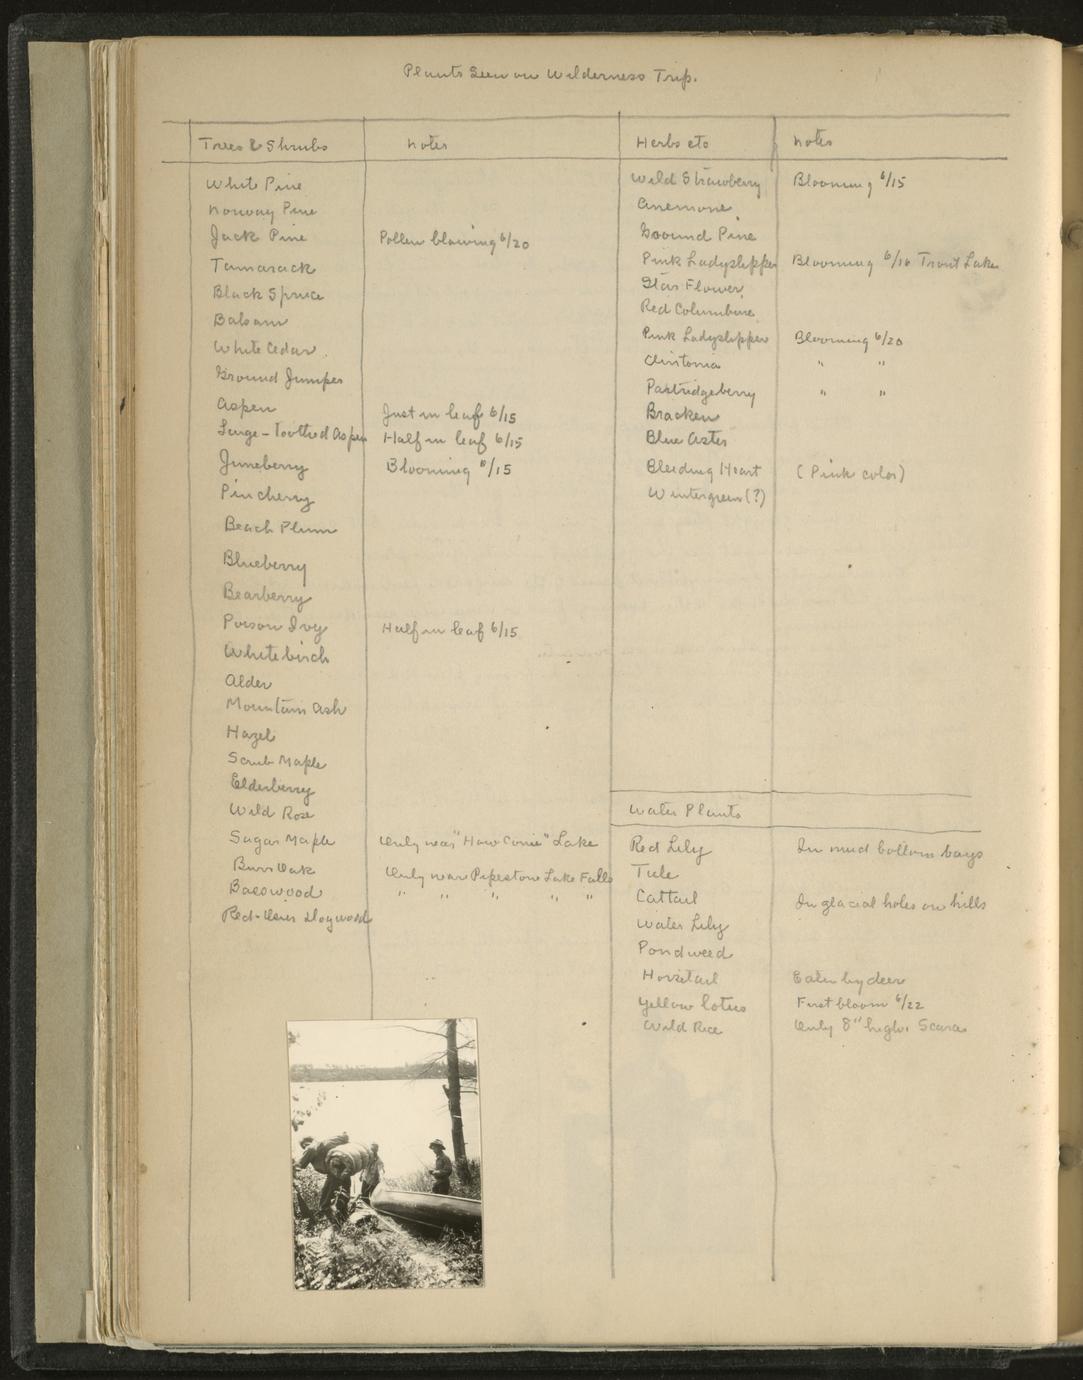 Plants Seen on Wilderness Trip.
Trees & Shrubs
Notes
White Pine
Norway Pine
Jack Pine
Pollen blowing 6/20
Tamarack
Black Spruce
Balsam
White Cedar
Ground Juniper
Aspen
Just in leaf 6/15
Large-Toothed Aspen
Half in leaf 6/15
Juneberry
Blooming 6/15
Pincherry
Beach Plum
Blueberry
Bearberry
Poison Ivy
Half in leaf 6/15
White birch
Alder
Mountain Ash
Hazel
Scrub Maple
Elderberry
Wild Rose
Sugar Maple
Only near "How Come" Lake
Burr Oak
Only near Pipestone Lake Falls
Basswood
" " " " "
Red-Osier Dogwood
Herbs etc
Notes
Wild Strawberry
Blooming 6/15
Anemone
Ground Pine
Pink Ladyslipper
Blooming 6/16 Trout Lake
Star Flower
Red Columbine
Pink Ladyslipper
Blooming 6/20
Clintonia
" "
Partridgeberry
" "
Bracken
Blue Aster
Bleeding Heart
(Pink color)
Wintergreen (?)
Water Plants
Red Lily
In mud bottom bays
Tule
Cattail
In glacial holes on hills
Water Lily
Pondweed
Horsetail
Eaten by deer
Yellow lotus
First bloom 6/22
Wild Rice
Only 8" high. Scarce